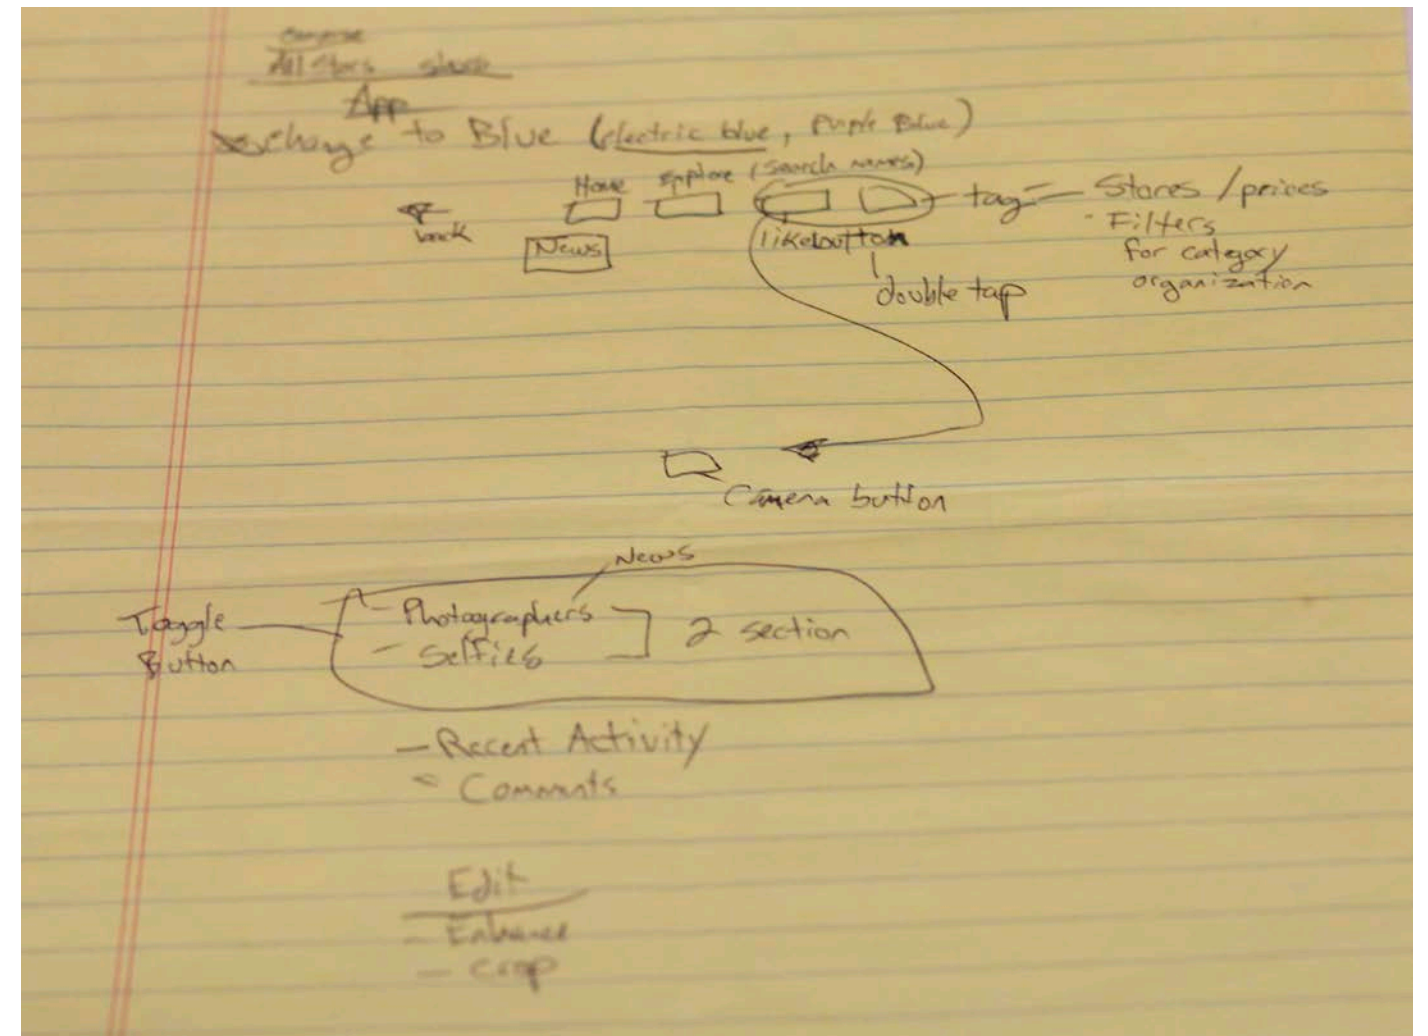 All Stars
App
change to Blue (electric blue, Purple Blue)
Home Explore (search names)
back
News
like button
double tap
tag
Stores / prices
- Filters
for category
organization
Camera button
News
Toggle
Button
- Photographers
- Selfies
2 section
- Recent Activity
- Comments
Edit
- Enhance
- Crop